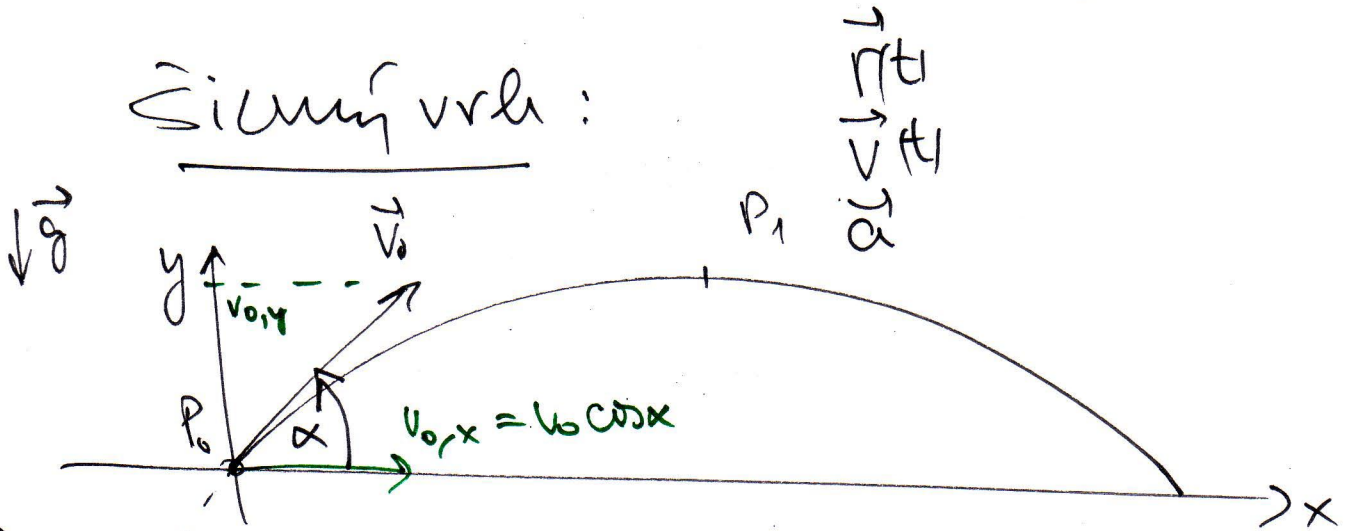 Šikmý vrh :
r⃗(t)
v⃗(t)
a⃗
g⃗
v⃗₀
P₁
y
v₀,y
P₀
α
v₀,x = v₀ cosα
x